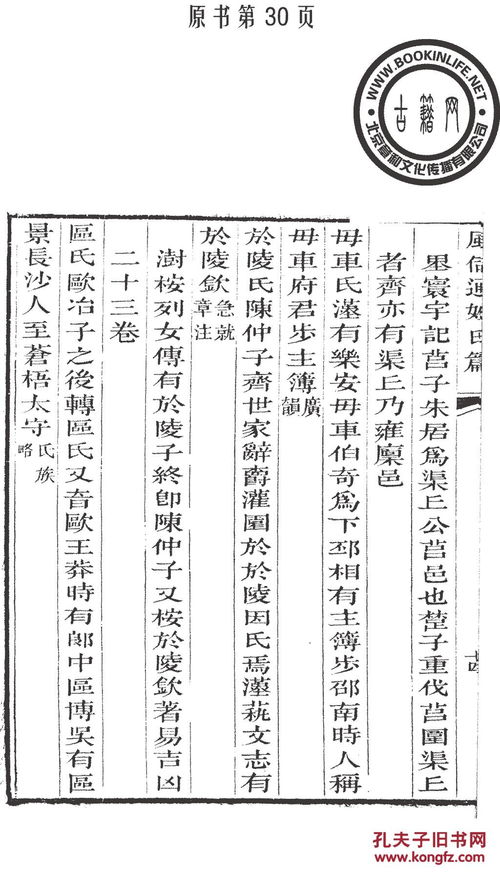 原书第30页
WWW.BOOKINLIFE.NET
古籍网
北京育和文化传播有限公司
風俗通姓氏篇
十四
里寰宇記莒子朱居爲渠丘公莒邑也楚子重伐莒圍渠丘
者齊亦有渠丘乃雍廩邑
毋車氏漢有樂安毋車伯奇爲下邳相有主簿步邵南時人稱
毋車府君步主簿廣韻
於陵氏陳仲子齊世家辭爵灌園於於陵因氏焉漢藝文志有
於陵欽急就章注
澍桉列女傳有於陵子終卽陳仲子又桉於陵欽著易吉凶
二十三卷
區氏歐冶子之後轉區氏又音歐王莽時有郞中區博吳有區
景長沙人至蒼梧太守氏族略
孔夫子旧书网
www.kongfz.com